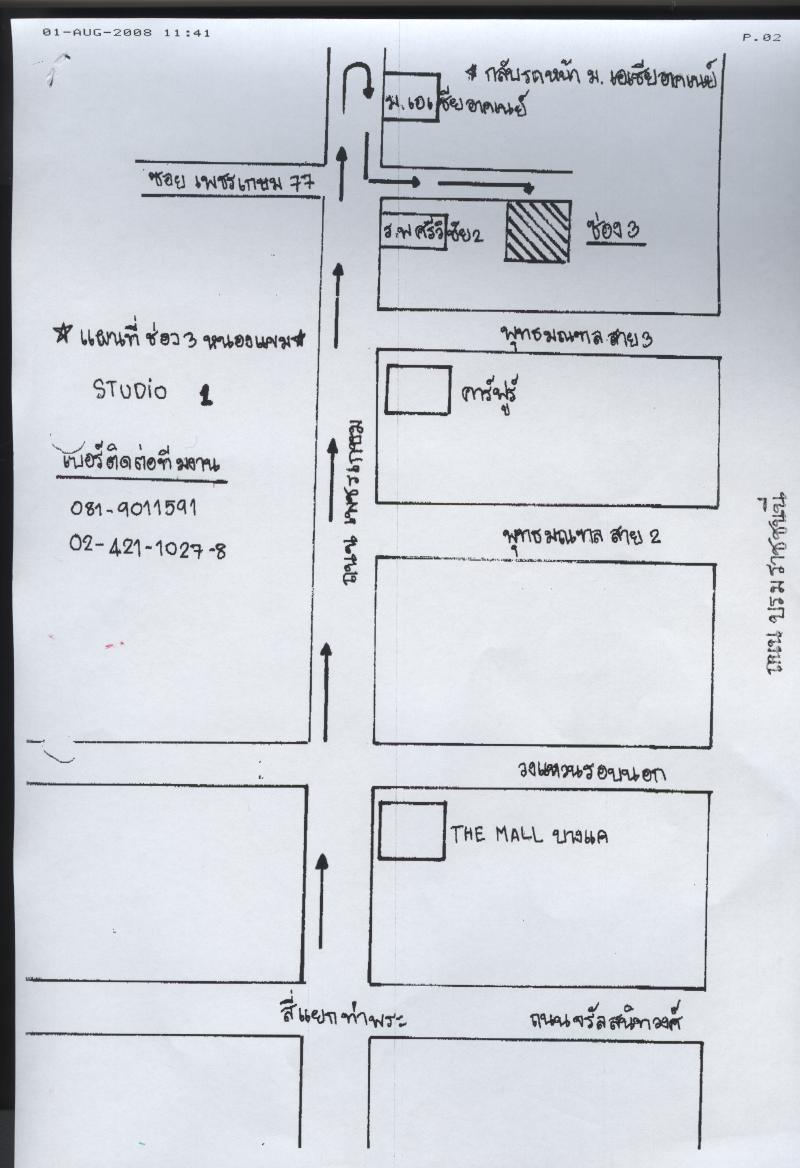 01-AUG-2008 11:41
P.02
* กลับรถหน้า ม. เอเชียอาคเนย์
ม.เอเชียอาคเนย์
ซอย เพชรเกษม 77
ร.พ ศรีวิชัย 2
ช่อง 3
* แผนที่ ช่อง 3 หนองแขม *
STUDIO 1
พุทธมณฑล สาย 3
คาร์ฟูร์
เบอร์ติดต่อทีมงาน
081-9011591
02-421-1027-8
ถนน เพชรเกษม
พุทธมณฑล สาย 2
ถนน บรมราชชนนี
วงแหวนรอบนอก
THE MALL บางแค
สี่แยกท่าพระ
ถนนจรัลสนิทวงศ์